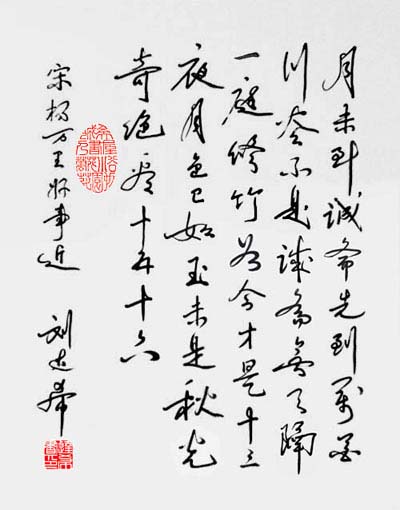 月未到诚斋先到萬花
川谷不是诚斋無月隔
一庭修竹如今才是十三
夜月色已如玉未是秋光
奇绝看十五十六
宋杨万里好事近 刘